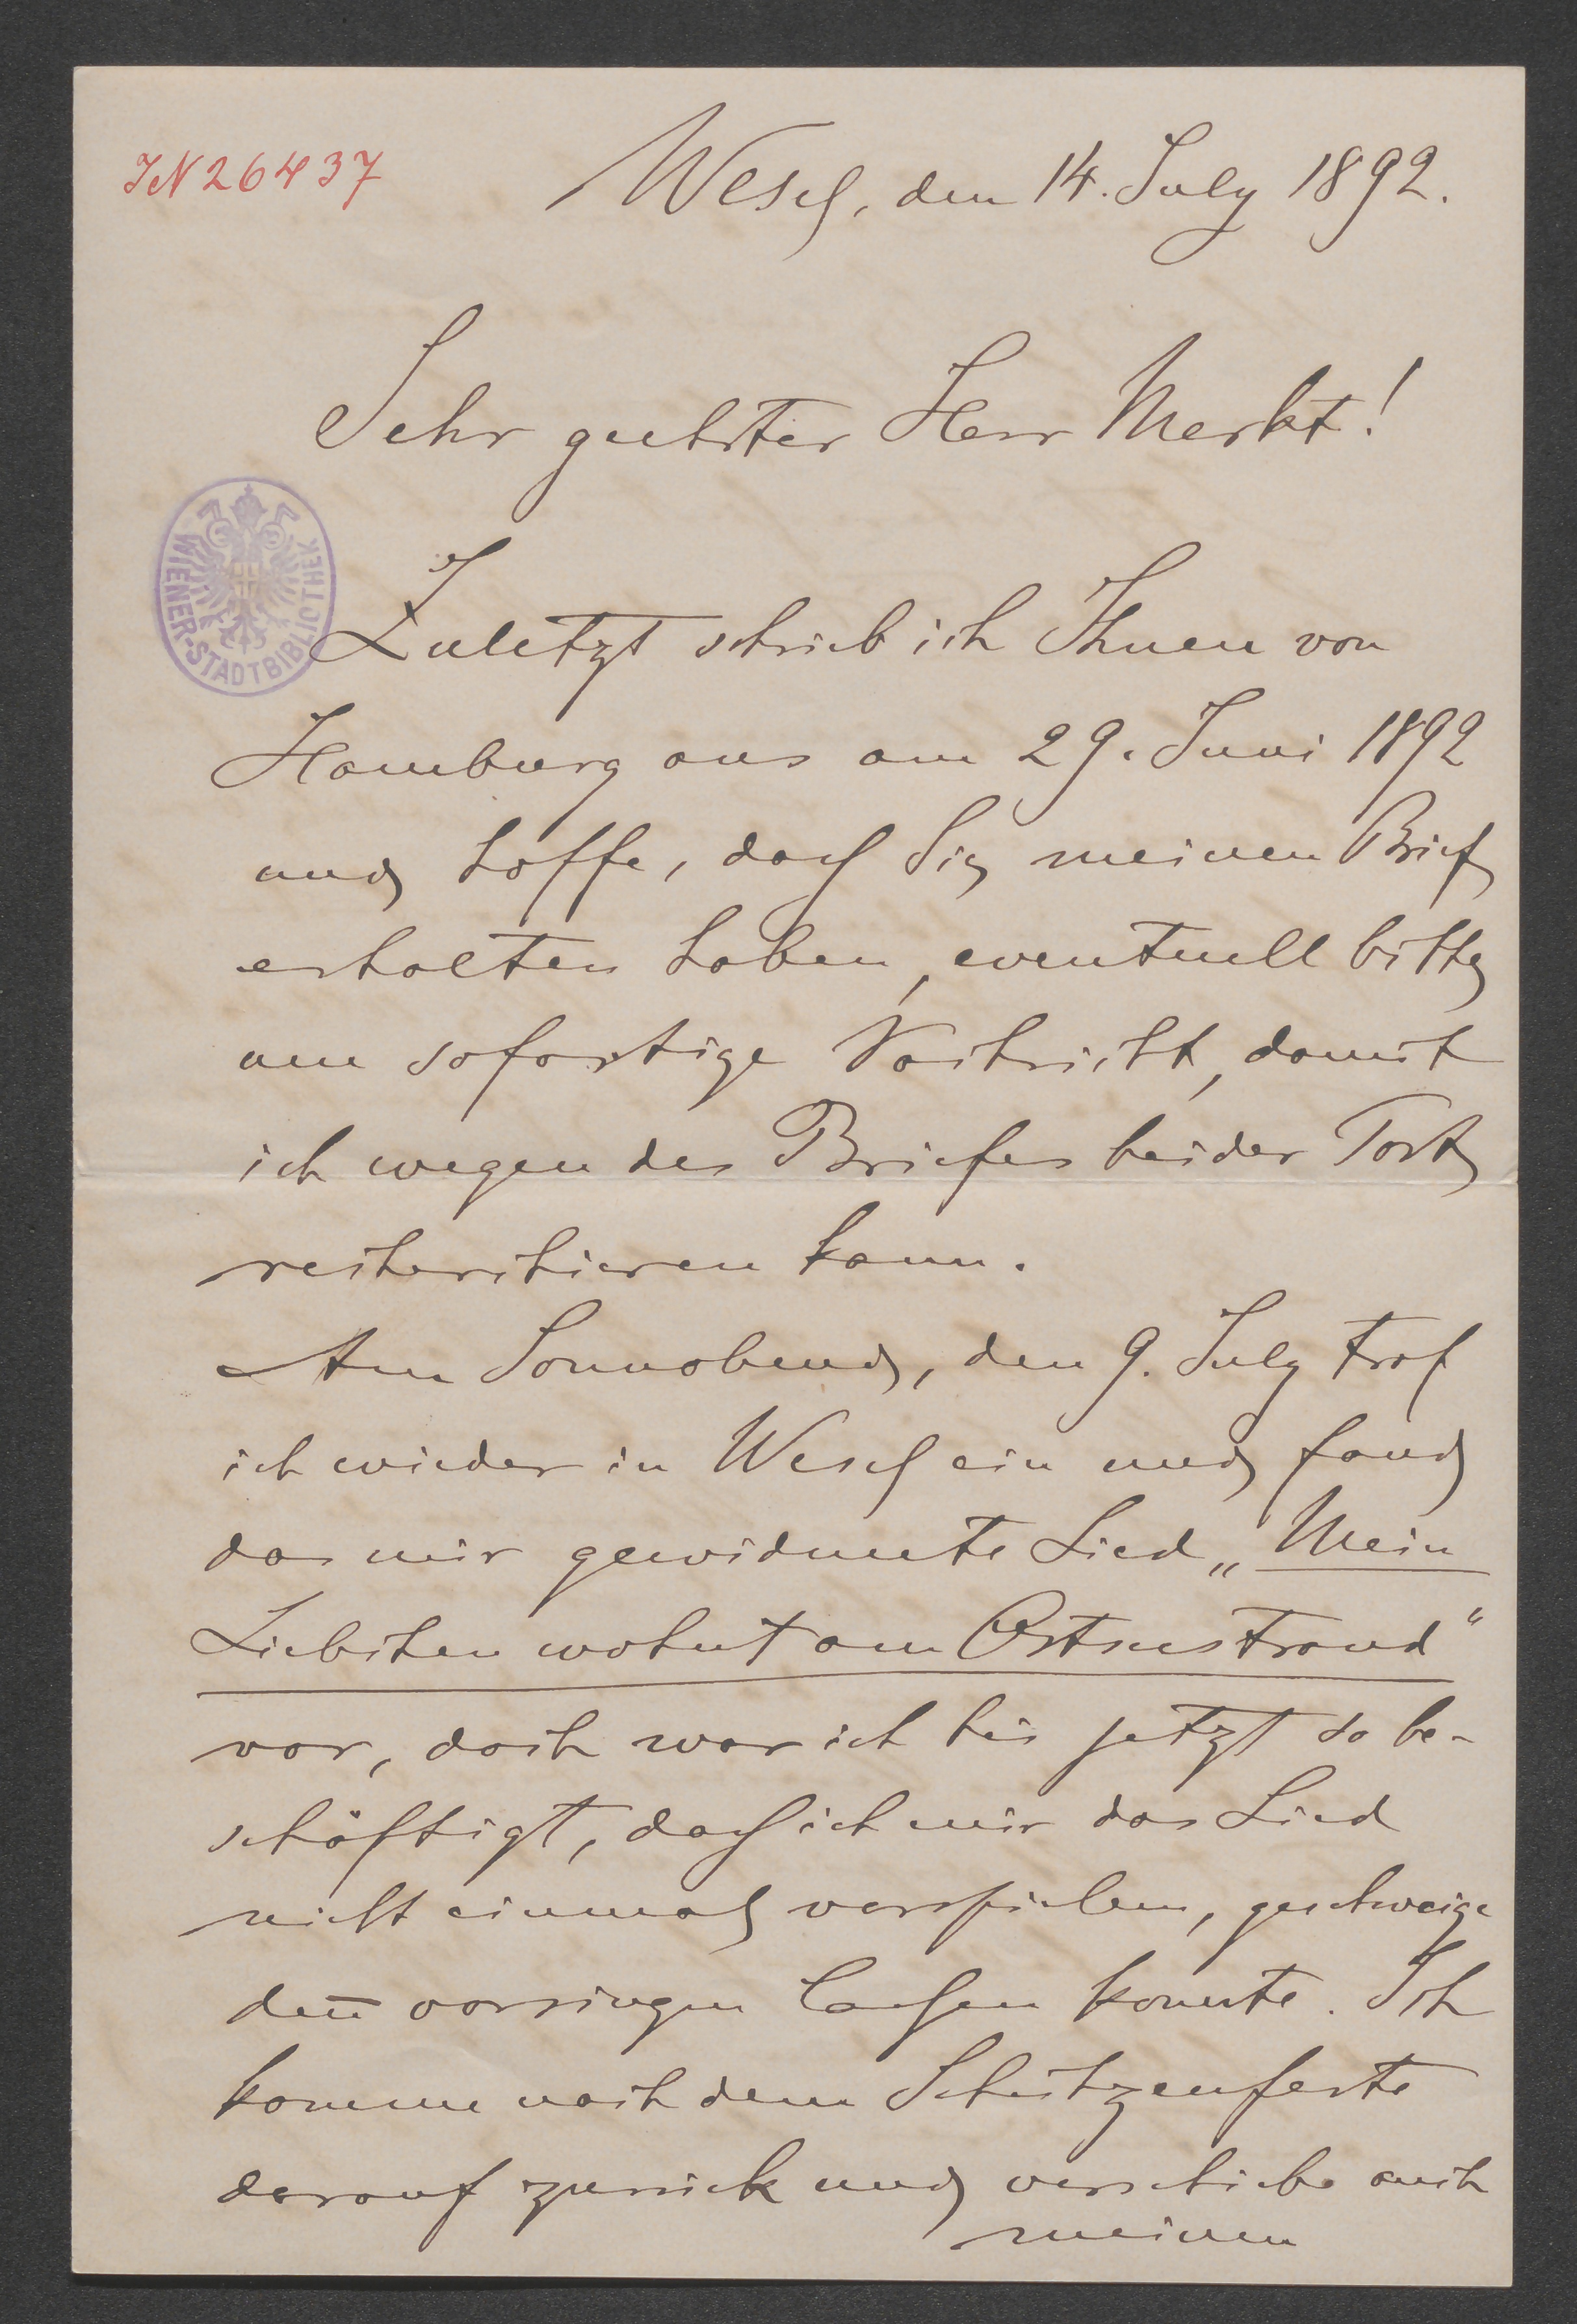 IN 26437
Wesel, den 14. July 1892.
Sehr geehrter Herr Merkt!
WIENER-STADTBIBLIOTHEK
Zuletzt schrieb ich Ihnen von
Hamburg aus am 29. Juni 1892
und hoffe, daß Sie meinen Brief
erhalten haben, eventuell bitte
um sofortige Nachricht, damit
ich wegen des Briefes bei der Post
recherchieren kann.
Am Sonnabend, den 9. July traf
ich wieder in Wesel ein und fand
das mir gewidmete Lied „Mein
Liebchen wohnt am Ostseestrand“
vor, doch war ich bis jetzt so be-
schäftigt, daß ich mir das Lied
nicht einmal vorspielen, geschweige
den̄ vorsingen laßen konnte. Ich
komme nach dem Schützenfeste
darauf zurück und verschiebe auch
meinen